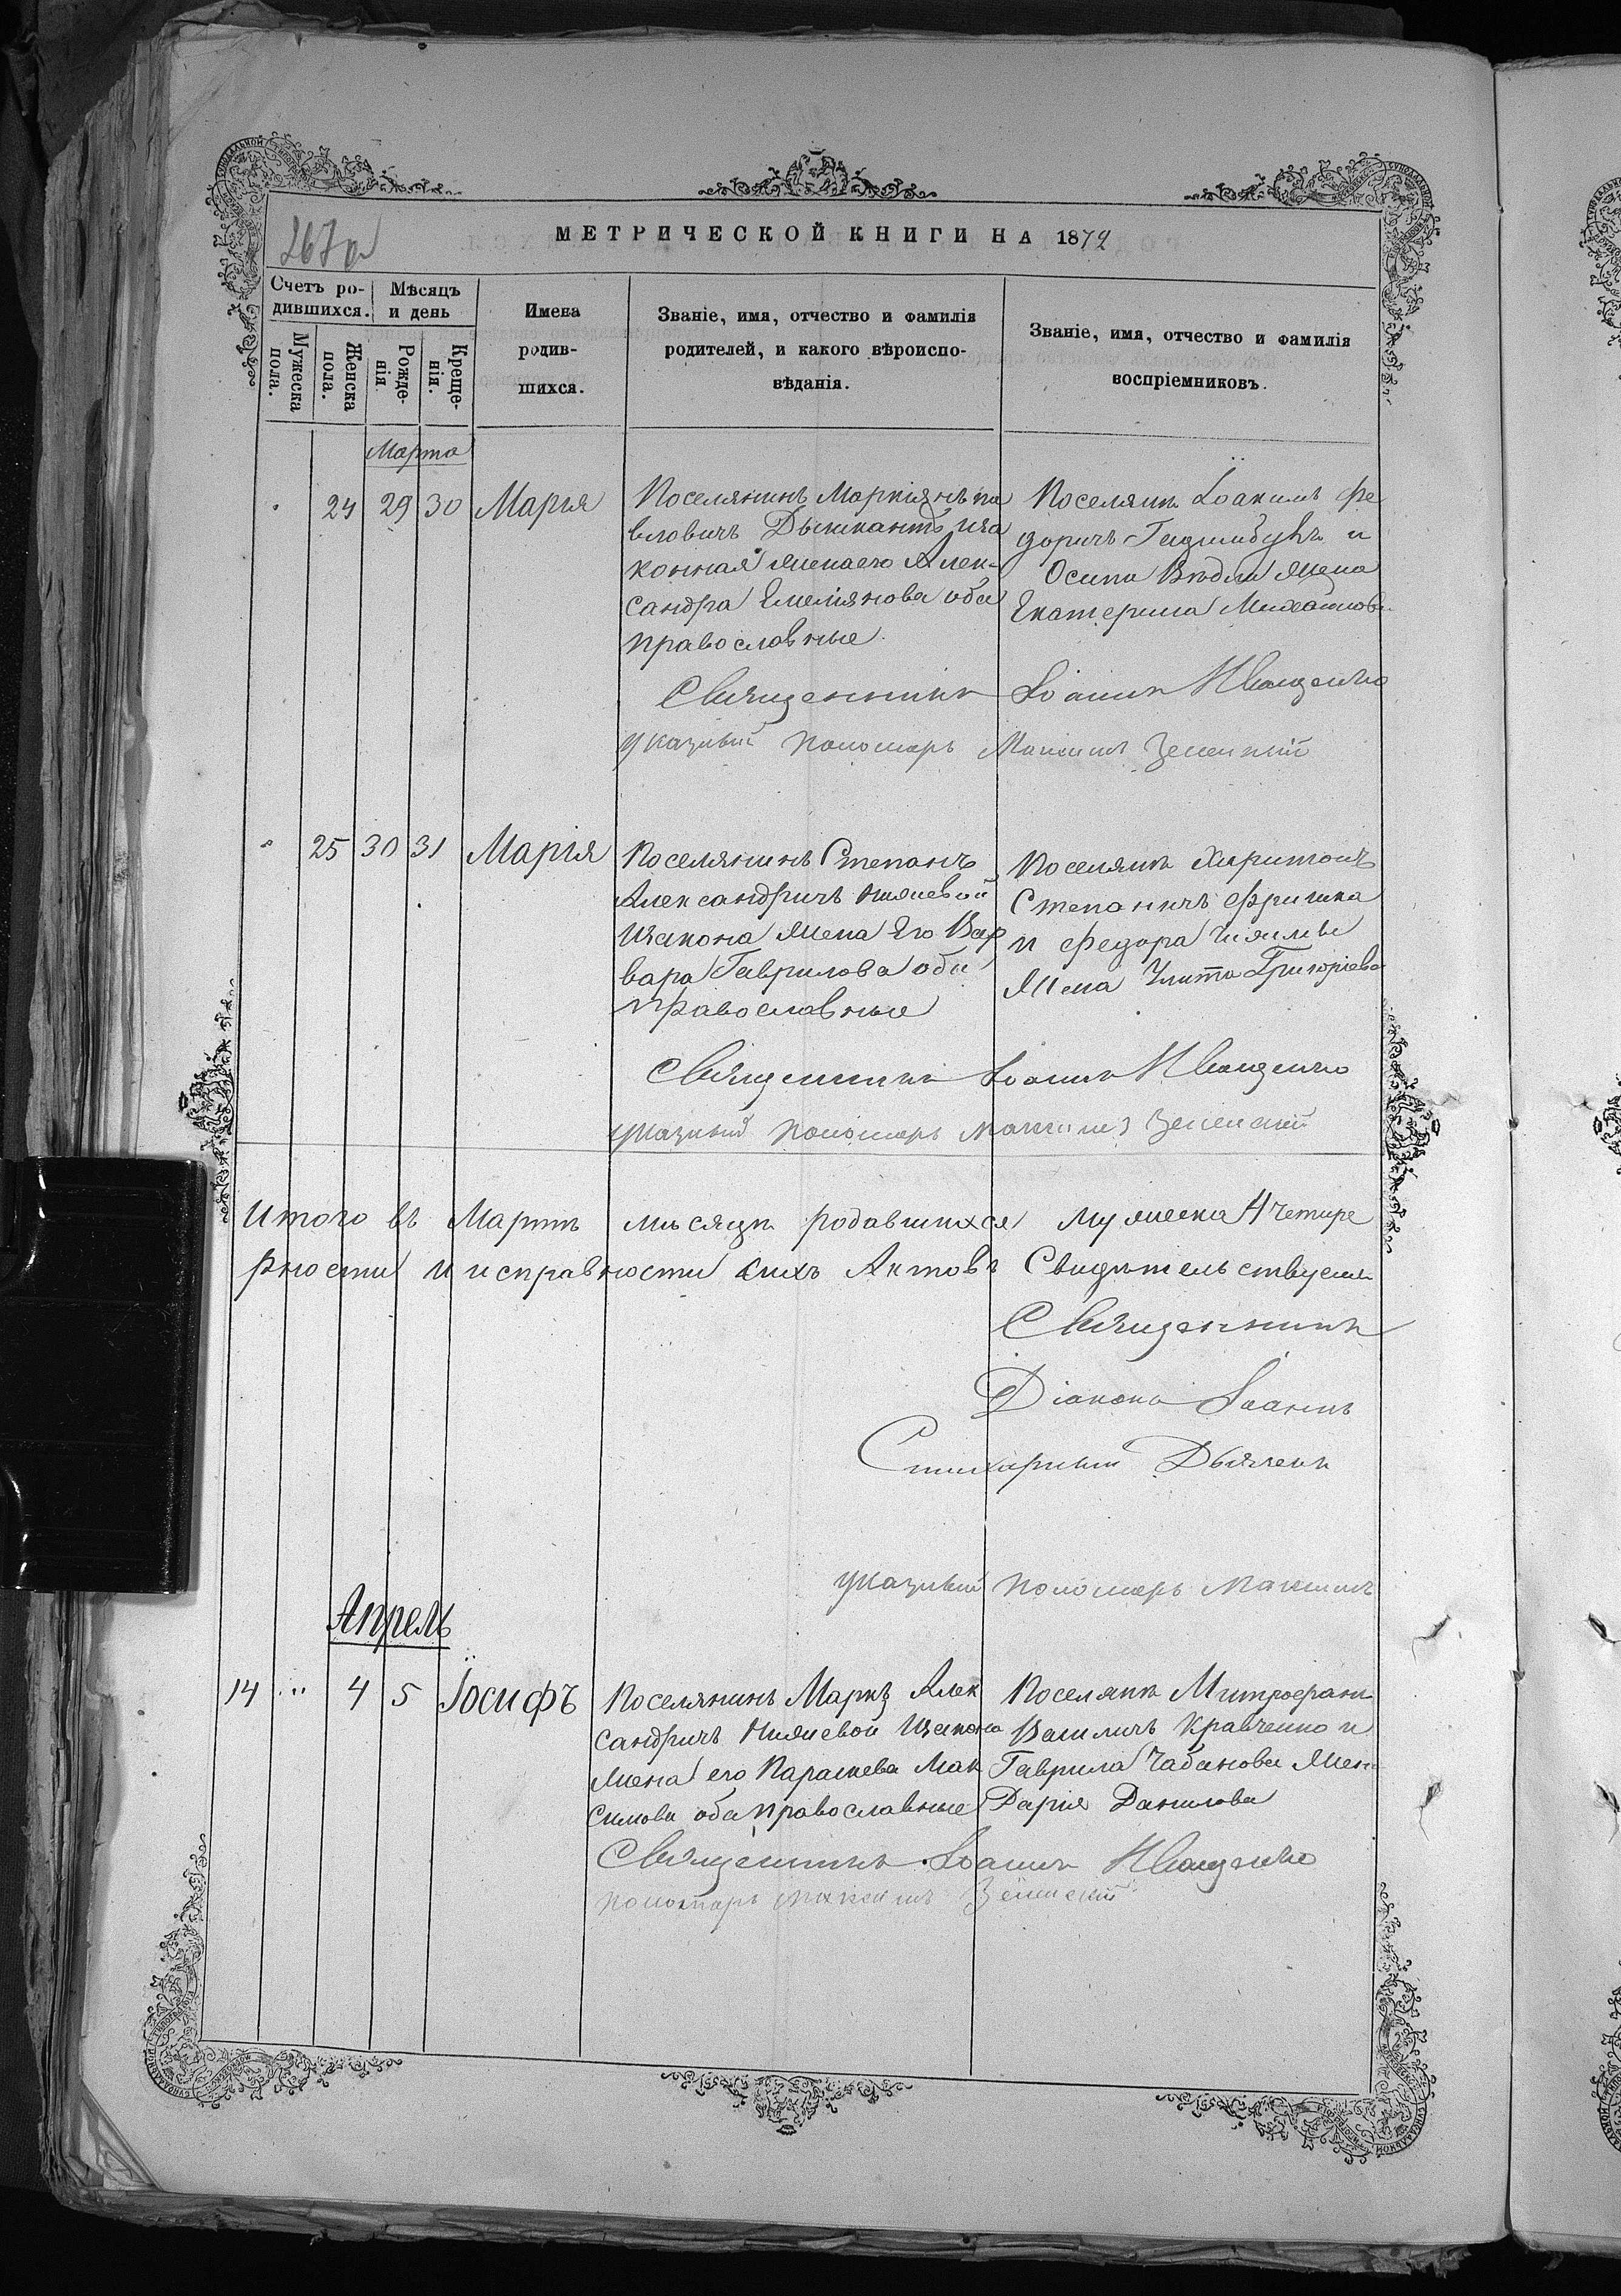 МЕТРИЧЕСКОЙ КНИГИ НА 1872
Счетъ ро-
дившихся.
Мѣсяцъ
и день
Мужеска
пола.
Женска
пола.
Рожде-
нія.
Креще-
нія.
Имена
родив-
шихся.
Званіе, имя, отчество и фамилія
родителей, и какого вѣроиспо-
вѣданія.
Званіе, имя, отчество и фамилія
воспріемниковъ.
Марта
24 29 30 Марія
Поселянинъ Маркіянъ па
вловичъ
конная жена его Алек-
сандра Емеліянова оба
православные
Поселянинъ Іоакимъ Фе
доричъ и
Осипа жена
Екатерина Михайлова
Священникъ Іоаннъ Иванченко
Указный пономарь Максимъ Зеленскій
25 30 31 Марія
Поселянинъ Степанъ
Александричъ Няневой
Изакона жена Его Вар
вара Гаврилова оба
Православные
Поселянинъ Харитонъ
Степаничъ Фришка
и Федора
Жена Улита Григоріева
Священникъ Іоаннъ Иванченко
указный пономарь Максимъ Зеленскій
Итого въ Мартѣ мѣсяцѣ родавшихся мужеска 4 четире
рности и исправности сихъ Актовъ Свидѣтельствуемъ
Священникъ
Діаконъ Іоаннъ
Стихарный Дьячекъ
указный пономарь Максимъ
Апрель
14 4 5 Іосифъ
Поселянинъ Марко Алек
сандричъ Няневой Изакона
жена его Параскева Мак
симова оба православные
Поселянинъ Митрофанъ
Василичъ Кравченко и
Гаврила Чабанова жена
Дарія Данилова
Священникъ Іоаннъ Иванченко
пономарь Максимъ Зеленскій